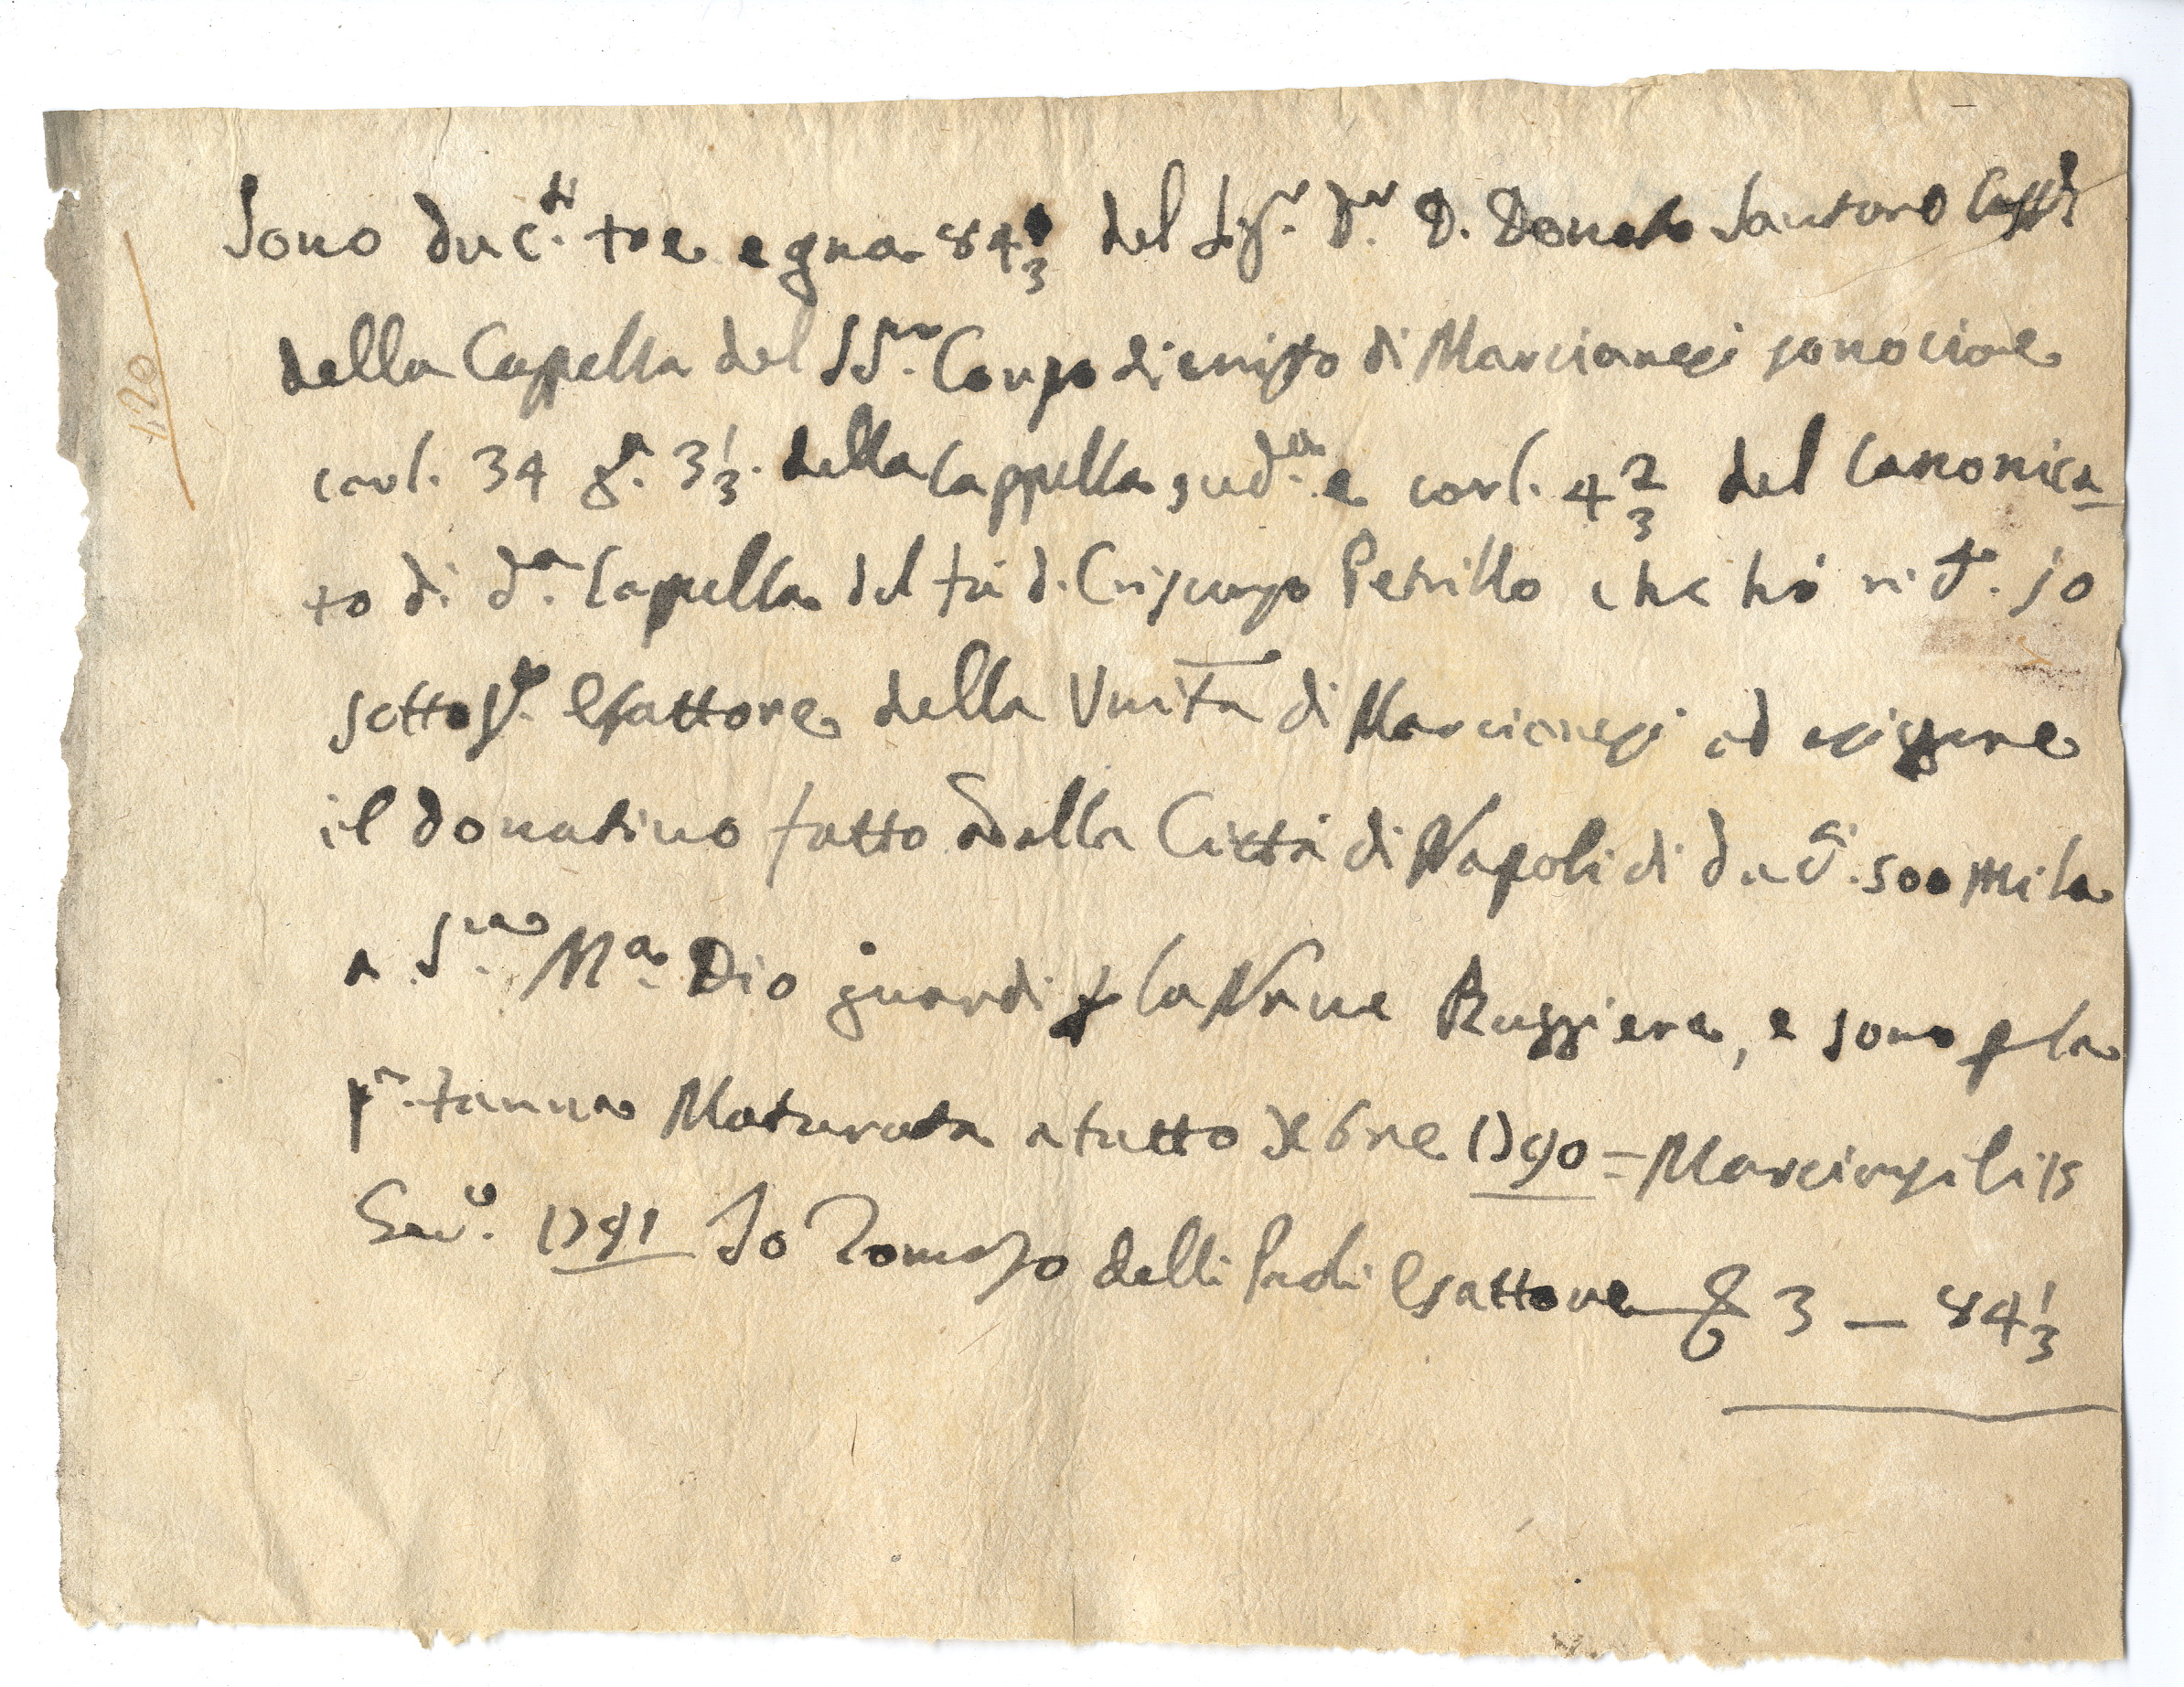 Sono duc.ti tre e gna 84 1/3 del Sig.r D.r D. Donato Santoro Capp.
della Cappella del SS.mo Corpo di Cristo di Marcianesi sono cioe
carl. 34 g.a 3 1/3. della Cappella sud.a e carl. 4 2/3 del Canonica
to di d.a Cappella del fù d. Petrillo che hò ric.to Io
sottos.to Esattore della Unità di Marcianesi ad esiggere
il donativo fatto dalla Città di Napoli di duc.ti 500 mila
a S.ua M.a Dio guardi p la Nave Ruggiera, e sono p la
p.a tanna Maturata a tutto Xbre 1790 = Marcianesi li 15
Gen.o 1791 Io Tomaso delli Paoli Esattore 3 — 84 1/3
120